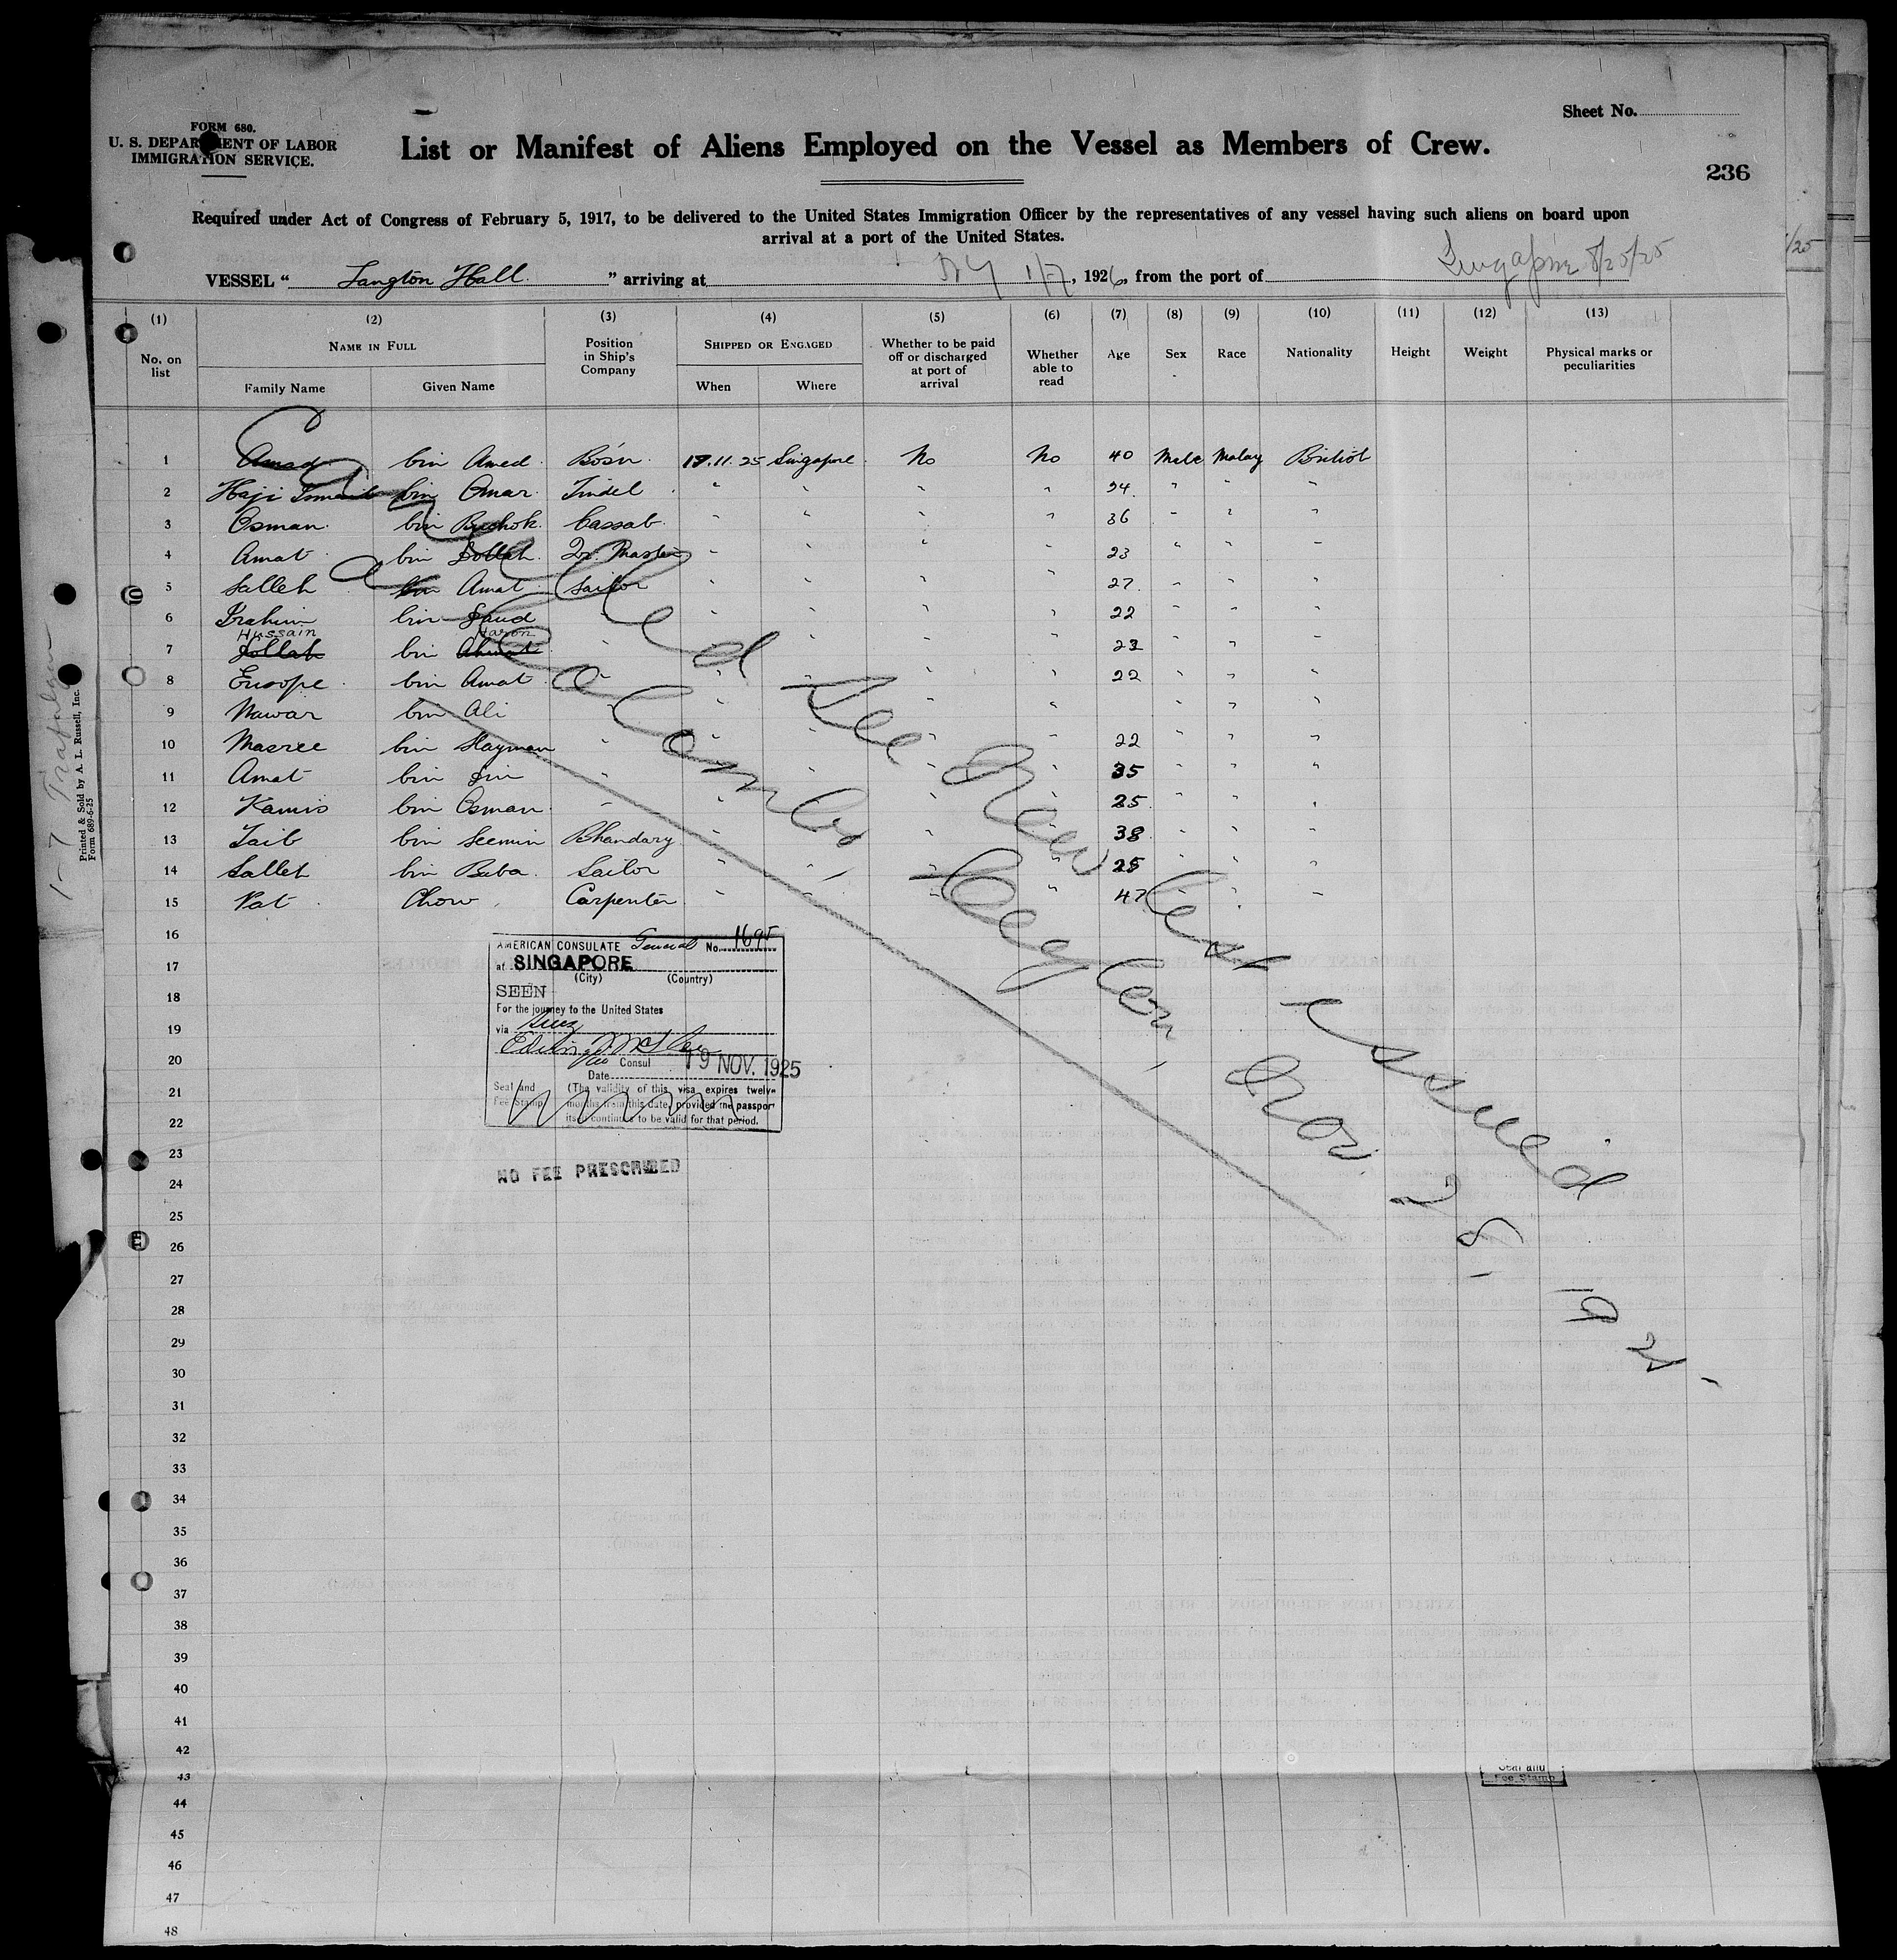 FORM 680.
U. S. DEPARTMENT OF LABOR
IMMIGRATION SERVICE.
Sheet No.
List or Manifest of Aliens Employed on the Vessel as Members of Crew.
236
Required under Act of Congress of February 5, 1917, to be delivered to the United States Immigration Officer by the representatives of any vessel having such aliens on board upon
arrival at a port of the United States.
VESSEL " Langton Hall " arriving at NY 1/7, 1926, from the port of Singapore 8/25/25
(1) (2) (3) (4) (5) (6) (7) (8) (9) (10) (11) (12) (13)
No. on list
NAME IN FULL
Family Name Given Name
Position in Ship's Company
SHIPPED OR ENGAGED
When Where
Whether to be paid off or discharged at port of arrival
Whether able to read
Age Sex Race Nationality Height Weight Physical marks or peculiarities
1 Amad bin Amed Bosn 17.11.25 Singapore No No 40 Male Malay British
2 Haji Ismail bin Omar Tindel " " " " 24 " " "
3 Osman bin Cassab " " " " 36 " " "
4 Amat bin Dollah Qr. Master " " " " 23 " " "
5 Salleh bin Amat Sailor " " " " 27 " " "
6 Brahim bin Daud " " " " " 22 " " "
Hussain Haron
7 Jollah bin Ahmat " " " " " 23 " "
8 Eusope bin Amat " " " " " 22 " " "
9 Nawar bin Ali " " " " " " " "
10 Masree bin Slayman " " " " " 22 " " "
11 Amat bin Jin " " " " " 35 " " "
12 Kamis bin Osman " " " " " 25 " " "
13 Taib bin Seemin Bhandary " " " " 38 " " "
14 Salleh bin Baba Sailor " " " " 25 " " "
15 Pat Chow Carpenter " " " " 47 " " "
16
17
18
19
20
21
22
23
24
25
26
27
28
29
30
31
32
33
34
35
36
37
38
39
40
41
42
43
44
45
46
47
48
AMERICAN CONSULATE General No. 1695
at SINGAPORE
(City) (Country)
SEEN
For the journey to the United States
via Suez
Consul
Date 19 NOV. 1925
Seal and Fee Stamp
(The validity of this visa expires twelve
months from this date, provided the passport
itself continues to be valid for that period.
NO FEE PRESCRIBED
Cancelled See New List issued
Colombo Ceylon Nov. 28, 1925
Printed & Sold by A. L. Russell, Inc.
Form 689-6-25
Seal and
Fee Stamp